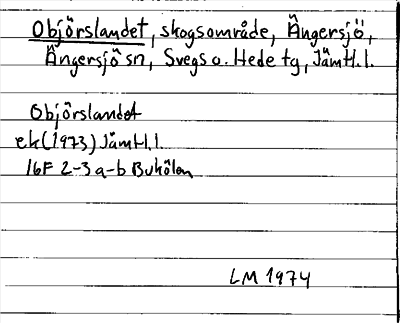 Objörslandet, skogsområde, Ängersjö,
Ängersjö sn, Svegs o. Hede tg, Jämtl. l.
Objörslandet
ek (1973) Jämtl. l.
16F 2-3 a-b Buhölen
LM 1974